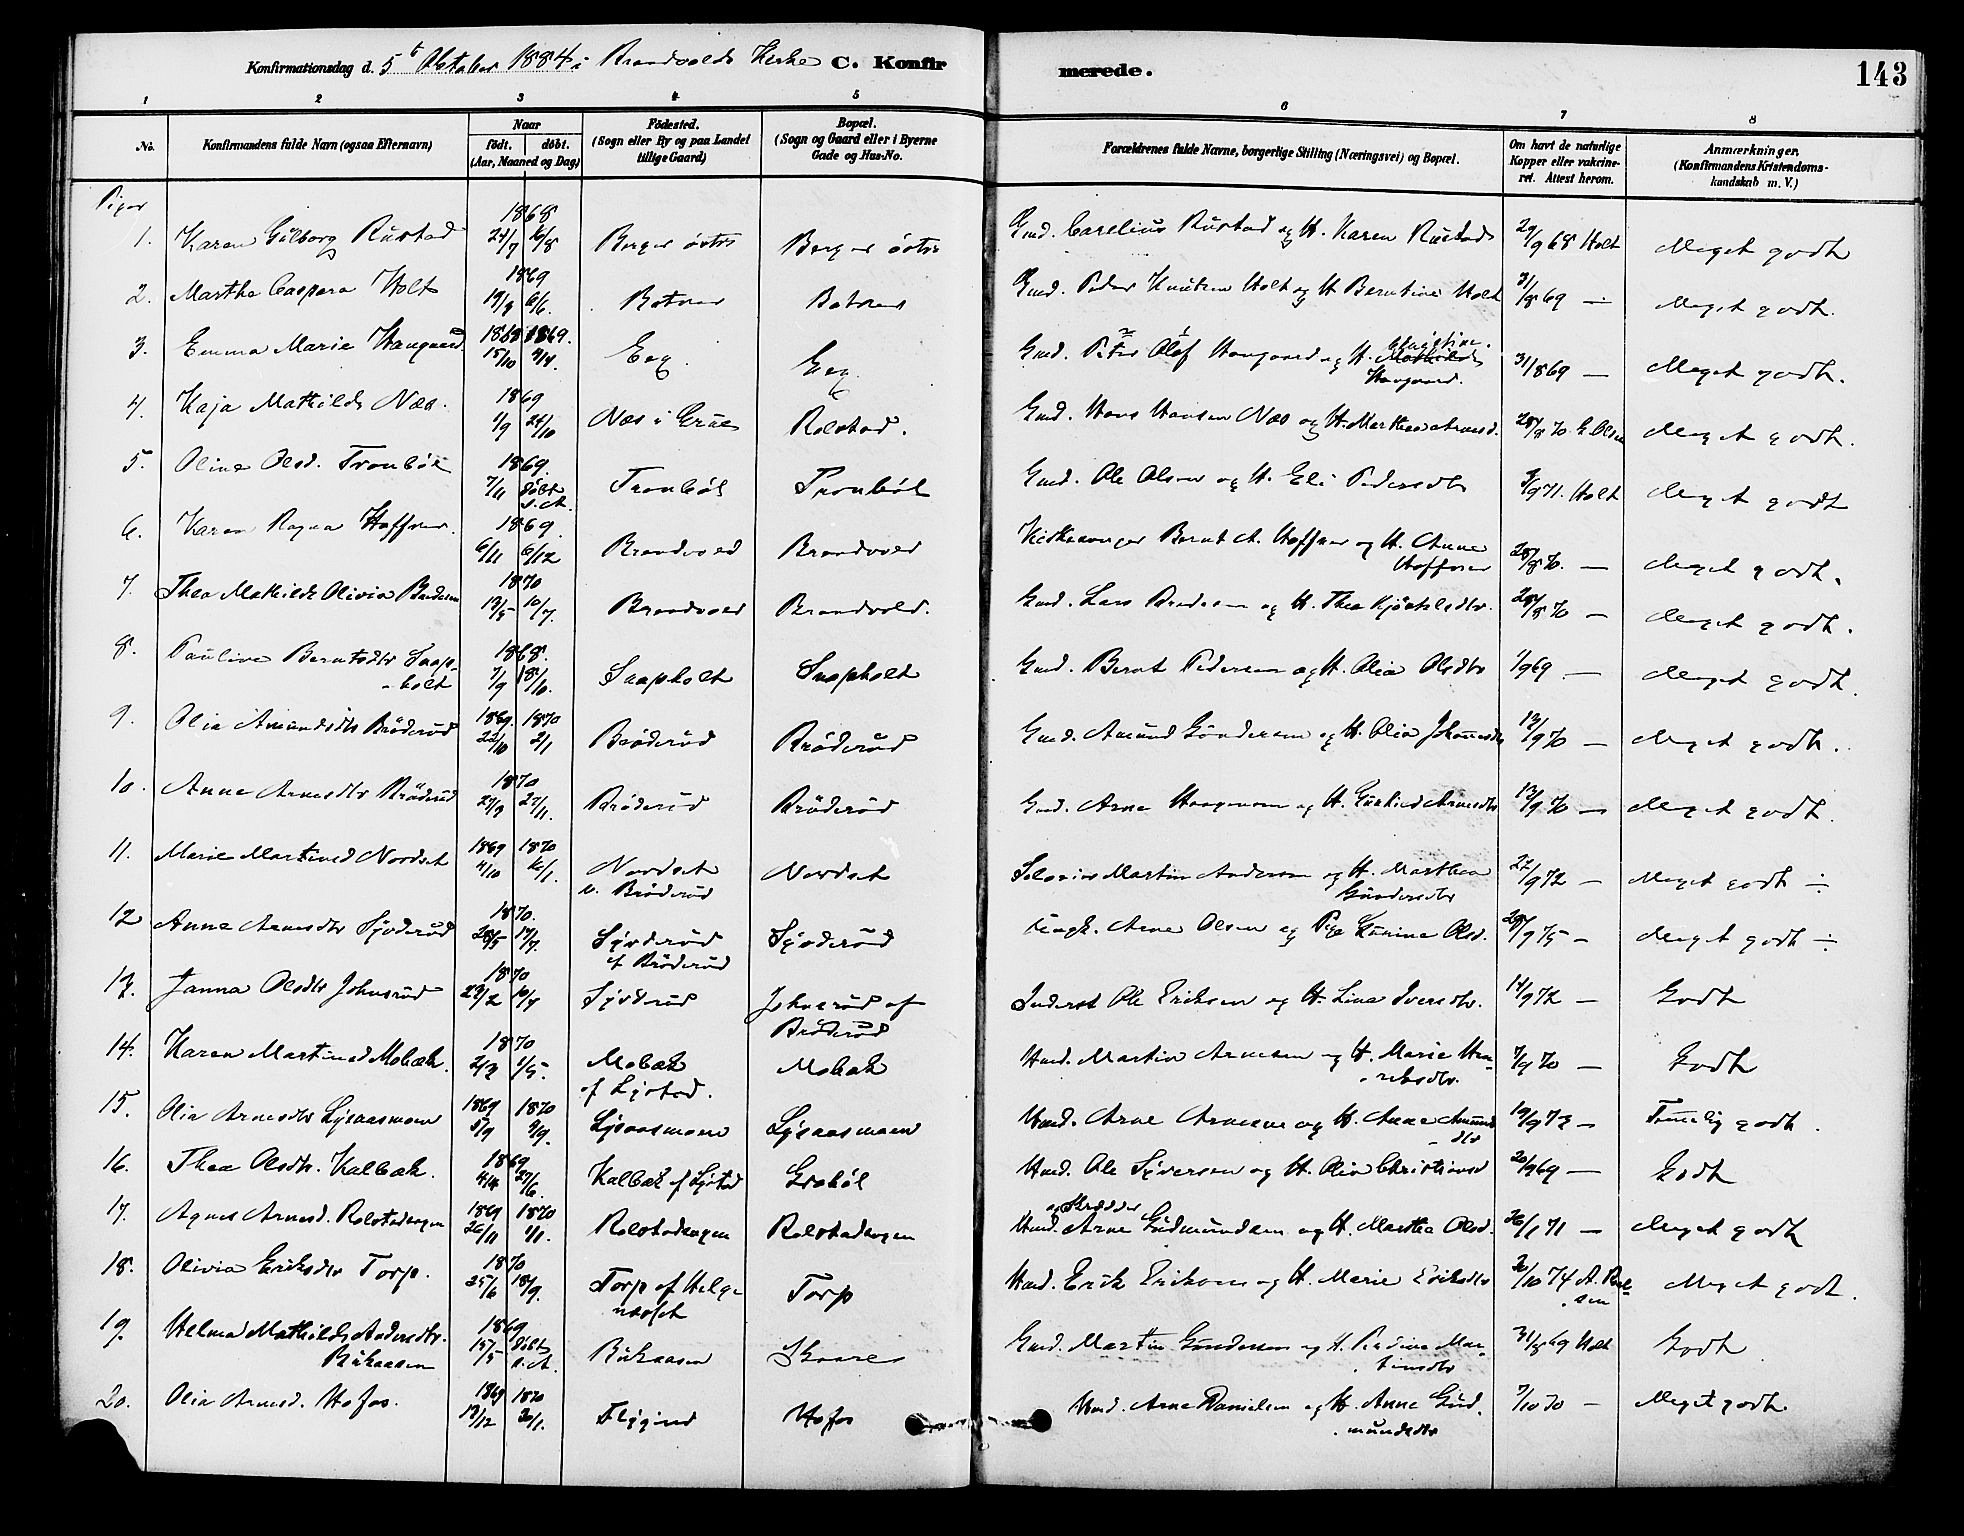 Konfirmationsdag d. 5t Oktober 1884 i Brandvolds Kirke C. Konfirmerede. 143
1 2 3 4 5 6 7 8
No. Konfirmandens fulde Navn (ogsaa Efternavn) Naar født. døbt. (Aar, Maaned og Dag) Födested. (Sogn eller By og paa Landet tillige Gaard) Bopæl. (Sogn og Gaard eller i Byerne Gade og Hus-No. Forældrenes fulde Navne, borgerlige Stilling (Næringsvei) og Bopæl. Om havt de naturlige Kopper eller vakcineret. Attest herom. Anmærkninger, (Konfirmandens Kristendomskundskab m. V.)
Piger
1. Karen Gilborg Rustad 1868 24/7 16/8 Berger östre Berger östre Gmd. Carelius Rustad og H. Karen Rustad 29/9 68 Holt Meget godt
2. Marthe Caspara Holt 1869 19/3 6/6. Botner Botner Gmd. Peder Knutsen Holt og H Berntine Holt 31/8 69 — Meget godt.
3. Emma Marie Haugaard 1868 1869. 15/10 4/4. Eeg. Eeg. Gmd. Peter Olof Haugaard og H. Mathilde Haugaard. 31/8 69 — Meget godt.
4. Kaja Mathilde Næs. 1869 1/9 24/10 Næs i Grue Rolstad. Gmd. Hans Hansen Næs og H. Marthea Arnesd. 28/8 70 E. Olsen Meget godt.
5. Oline Olsd. Tronböl 1869. 7/11 döbt s. A. Tronböl Tronböl Gmd. Ole Olsen og H. Eli Pedersdtr 3/9 71. Holt Meget godt
6. Karen Ragna Hoffner. 1869. 6/11 6/12 Brandvold Brandvold Kirkesanger Bernt A. Hoffner og H. Anne Hoffner 28/8 70. — Meget godt.
7. Thea Mathilde Olivia 1870 13/5 10/7. Brandvold Brandvold. Gmd. Lars og H. Thea Kjöstelsdtr. 28/8 70 — Meget godt.
8. Pauline Berntsdtr Saapholt 1868. 7/9 18/10. Saapholt Saapholt Gmd. Bernt Pedersen og H. Olia Olsdtr 1/9 69 — Meget godt.
9. Olia Amundsdtr Bröderud 1869. 1870 22/10 2/1 Bröderud Bröderud Gmd. Amund Gundersen og H. Olia Johannesdtr 13/9 70 — Meget godt.
10. Anne Arnesdtr Bröderud 1870 29/9 27/11. Bröderud Bröderud Gmd. Arne Haagensen og H. Arnesdtr 13/9 70 — Meget godt.
11. Marie Martinsd Nordset 1869 1870 4/10 16/1. Nordset u. Bröderud Nordset Martin Andersen og H. Marthea Gundersdtr 27/9 72 — Meget godt ÷
12 Anne Arnesdtr Syverud 1870. 28/5 17/7. Syverud af Bröderud Syverud Ungk. Arne Olsen og Pige Olsd. 29/9 75 — Meget godt ÷
13. Janna Olsdtr Johnsrud 1870 23/2 10/4 Syverud Johnsrud af Bröderud Inderst Ole Eriksen og H. Lina Iversdtr. 14/9 72 — Godt
14. Karen Martinsd Mobæk. 1870 2/3 1/5. Mobæk af Lystad. Mobæk Hmd. Martin Arnesen og H. Marie Henriksdtr. 7/9 70 — Godt
15. Olia Arnesdtr Lysaasmoen 1869 1870 5/9 4/9. Lysaasmoen Lysaasmoen Hmd. Arne Arnesen og H. Anne Amundsdtr 19/9 73 — Temmelig godt.
16. Thea Olsdtr. Kalbæk. 1869 4/4 27/6. Kalbæk af Lystad Grøböl Hmd. Ole Syversen og H. Olia Christiansd 20/9 69 — Godt
17. Agnes Arnesd. Rolstadeagen 1869 1870 26/11 1/1. Rolstadeagen Rolstadeagen Hmd. og Skrædder Arne Gudmundsen og H. Marthea Olsd. 26/1 71 — Meget godt
18. Olivia Eriksdtr Torp. 1870 25/6 18/9. Torp af Helgeneset Torp Hmd. Erik Eriksen og H. Marie Eriksdtr 20/10 74 A. Meget godt.
19. Helma Mathilde Andersdtr. Rukaasen 1869 15/5 döbt s. A. Rukaasen Skaare Gmd. Martin Gundersen og H. Martinsdtr 31/8 69 Holt Godt
20. Olia Arnesd. Hofos. 1869 1870 19/12 30/1. Flygind Hofos Hmd. Arne Danielsen og H. Anne Gudmundsdtr 7/10 70 — Meget godt.